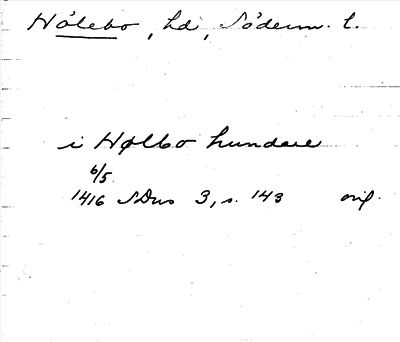 Hölebo, hd, Söderm. l.
i Hølbo hundære
6/5.
1416 SDns 3, s. 143 orig.